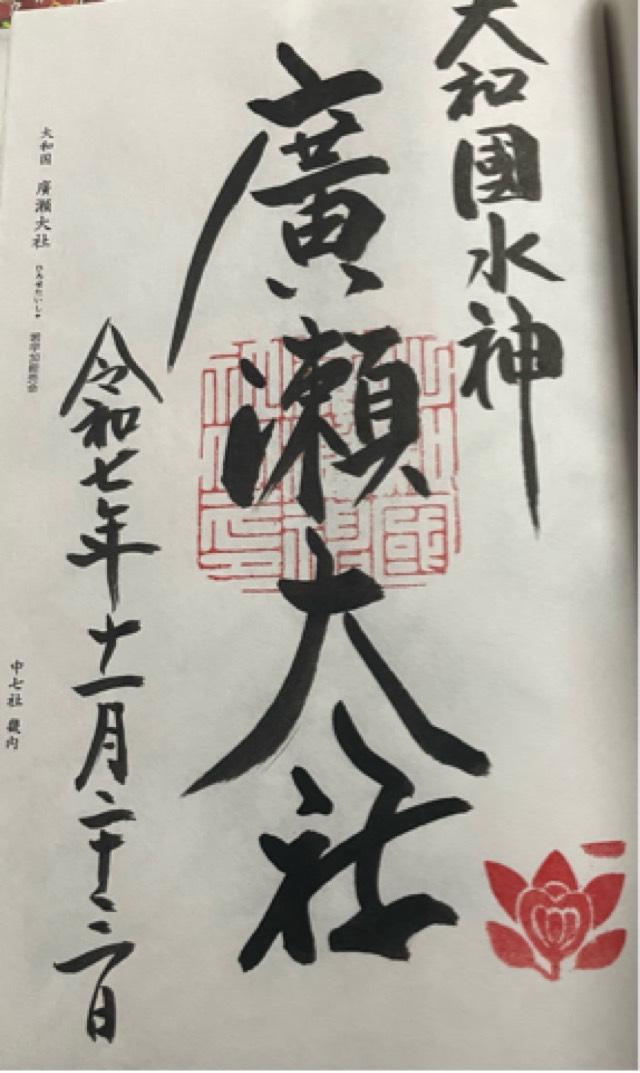 大和國水神
廣瀬大社
令和七年十一月二十三日
大和国 廣瀬大社 ひろせたいしゃ
中七社 畿内